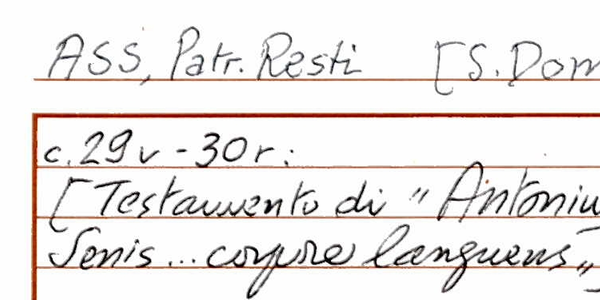 ASS, Patr. Resti [S. Dom
c. 29v - 30r:
[Testamento di "Antoniu
Senis... corpore languens"]